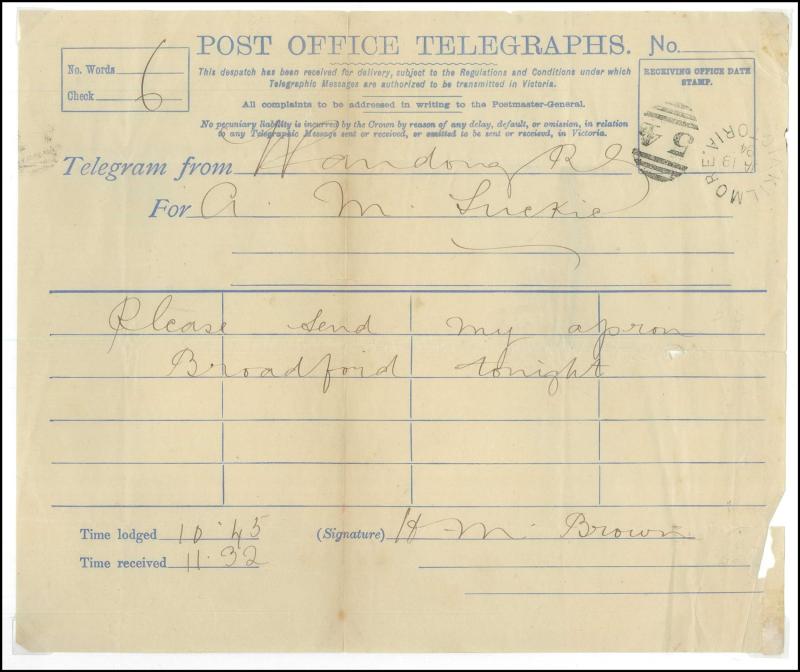 POST OFFICE TELEGRAPHS. No.
No. Words 6
Check
This despatch has been received for delivery, subject to the Regulations and Conditions under which
Telegraphic Messages are authorized to be transmitted in Victoria.
All complaints to be addressed in writing to the Postmaster-General.
No pecuniary liability is incurred by the Crown by reason of any delay, default, or omission, in relation
to any Telegraphic Message sent or received, or omitted to be sent or received, in Victoria.
RECEIVING OFFICE DATE
STAMP.
54
KILMORE
VICTORIA
Telegram from Wandong
For A. M. Luckie
Please send my apron
Broadford tonight
Time lodged 10.45
(Signature) H M. Brown
Time received 11.32